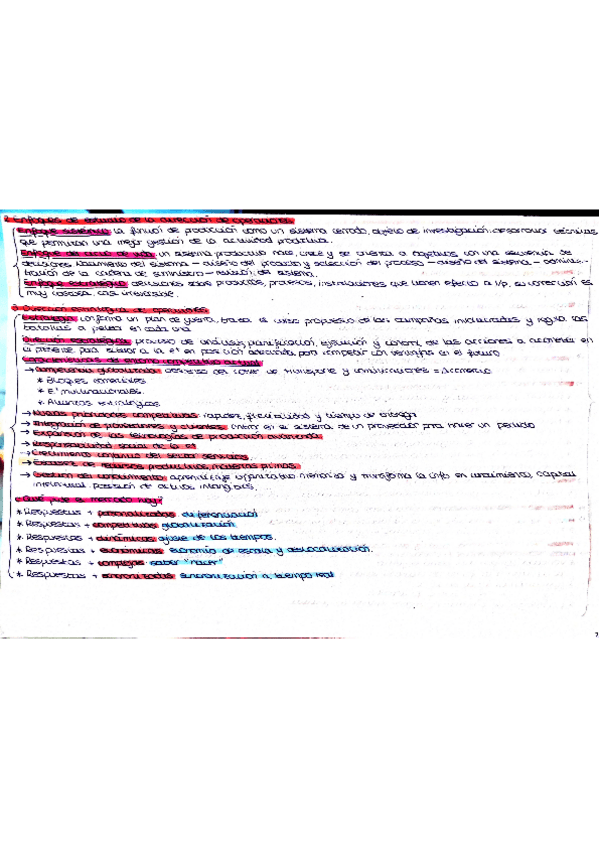 2. Enfoques de estudio de la dirección de operaciones.
Enfoque sistémico: la función de producción como un sistema cerrado, objeto de investigación, desarrollar técnicas
que permitan una mejor gestión de la actividad productiva.
Enfoque del ciclo de vida: un sistema productivo nace, crece y se orienta a objetivos con una secuencia de
decisiones. Nacimiento del sistema - diseño del producto y selección del proceso - diseño del sistema -
de la cadena de suministro - revisión del sistema.
Enfoque estratégico: decisiones sobre productos, procesos, instalaciones que tienen efecto a l/p, su corrección es
muy costosa, casi irreversible.
Dirección estratégica de operaciones
Estrategia: conforma un plan de guerra, traza el curso propuesto de las campañas involucradas y regula las
batallas a pelear en cada una.
Dirección estratégica: proceso de análisis, planificación, ejecución y control de las acciones a acometer en
el presente para situar a la eª en posición adecuada, para competir con ventajas en el futuro
Características de entorno competitivo actual
→ Competencia globalizada: descenso del coste de transporte y comunicaciones
* Bloques comerciales
* Eª multinacionales.
* Alianzas estratégicas
→ Nuevas prioridades competitivas: rapidez, flexibilidad y tiempo de entrega
→ Integración de proveedores y clientes: entrar en el sistema de un proveedor para hacer un pedido
→ Expansión de las tecnologías de producción avanzada.
→ Responsabilidad social de la eª
→ Crecimiento continuo del sector servicios.
→ Escasez de recursos productivos, materias primas.
→ Gestión del conocimiento: aprendizaje organizativo memoriza y transforma la info en conocimiento, capital
intelectual. Posesión de activos intangibles.
¿Qué pide el mercado hoy?
* Respuestas + personalizadas: diferenciación
* Respuestas + competitivas: globalización
* Respuestas + dinámicas: ajuste de los tiempos.
* Respuestas + económicas: economía de escala y deslocalización.
* Respuestas + complejas: saber "hacer"
* Respuestas + sincronizadas: sincronización a tiempo real